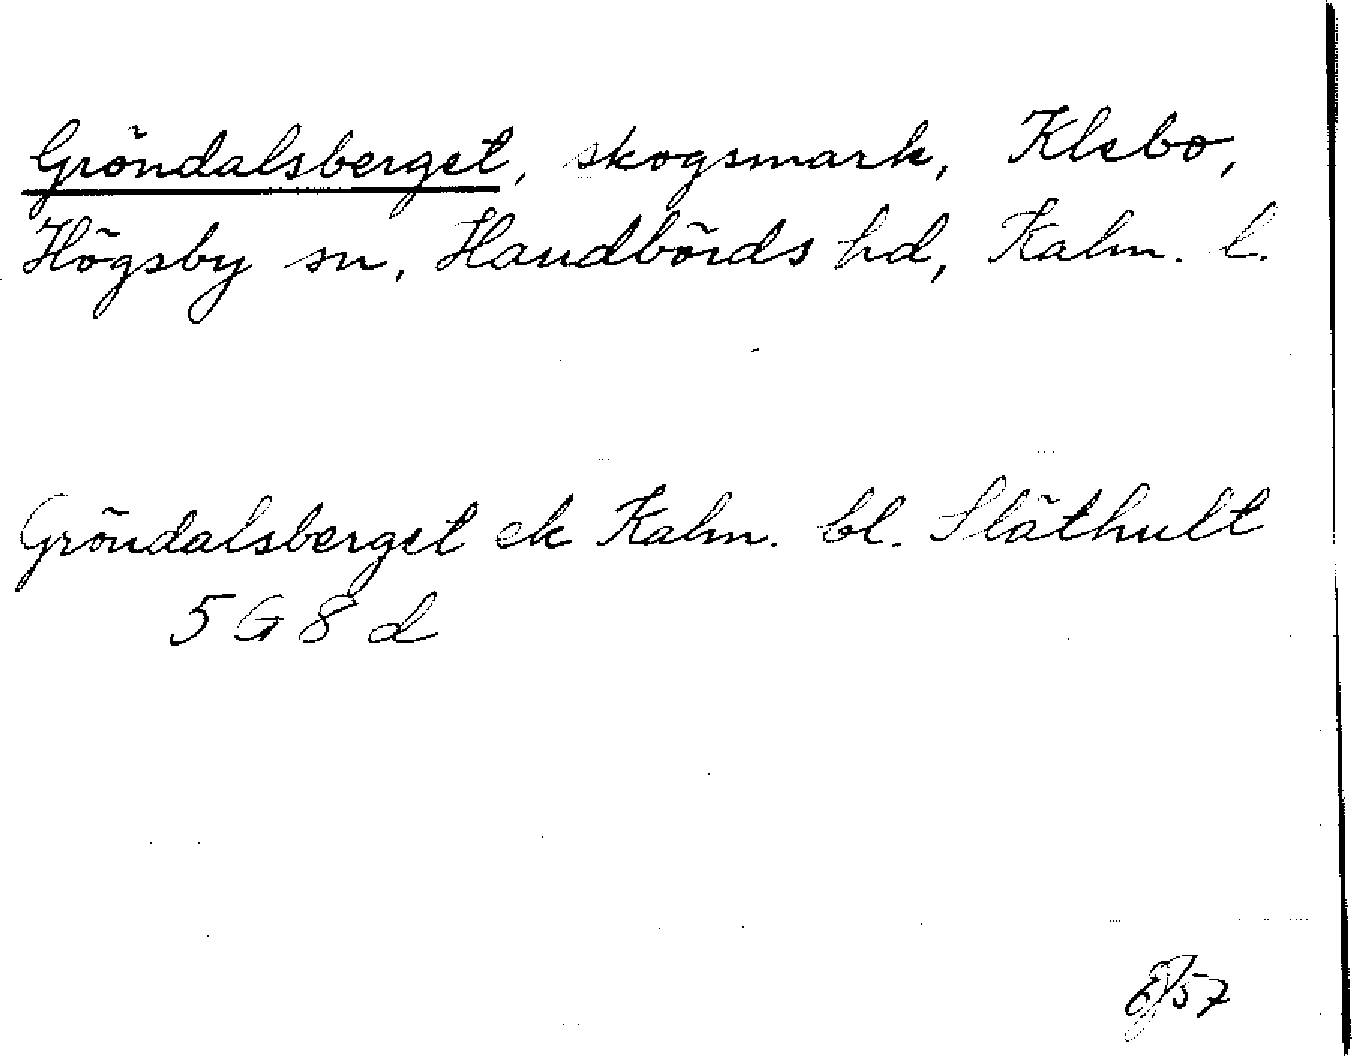 Gröndalsberget, skogsmark, Klebo,
Högsby sn, Handbörds hd, Kalm. l.
Gröndalsberget ek Kalm. bl. Släthult
5 G 8 d
57